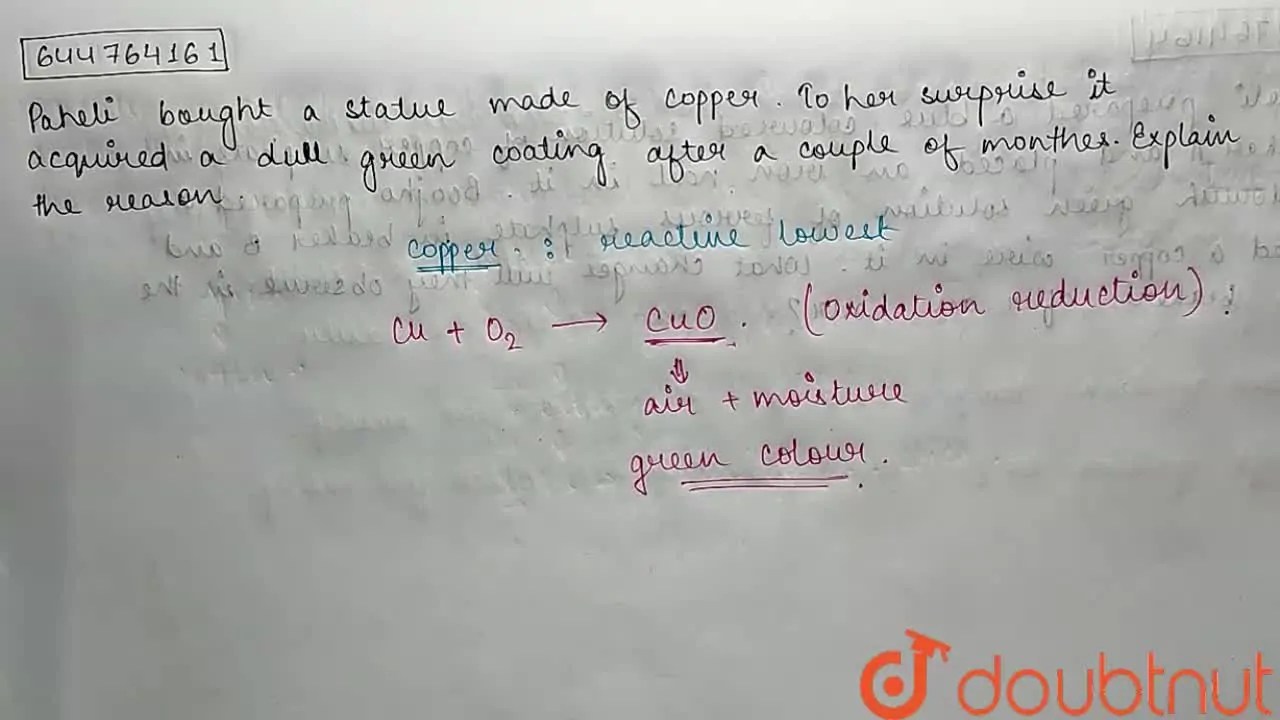 644764161
Paheli bought a statue made of copper. To her surprise it
acquired a dull green coating after a couple of monthes. Explain
the reason.
copper : reactine lowest
Cu + O2 → CuO. (Oxidation reduction).
⇓
air + moisture
green colour.
doubtnut